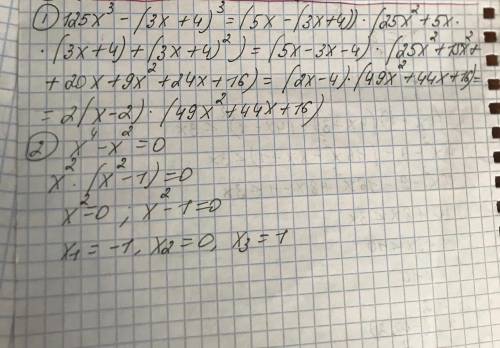 ① 125x³ − (3x + 4)³ = (5x − (3x + 4)) · (25x² + 5x ·
· (3x + 4) + (3x + 4)²) = (5x − 3x − 4) · (25x² + 15x² +
+ 20x + 9x² + 24x + 16) = (2x − 4) · (49x² + 44x + 16) =
= 2(x − 2) · (49x² + 44x + 16)
② x⁴ − x² = 0
x² · (x² − 1) = 0
x² = 0 ; x² − 1 = 0
x₁ = −1, x₂ = 0, x₃ = 1